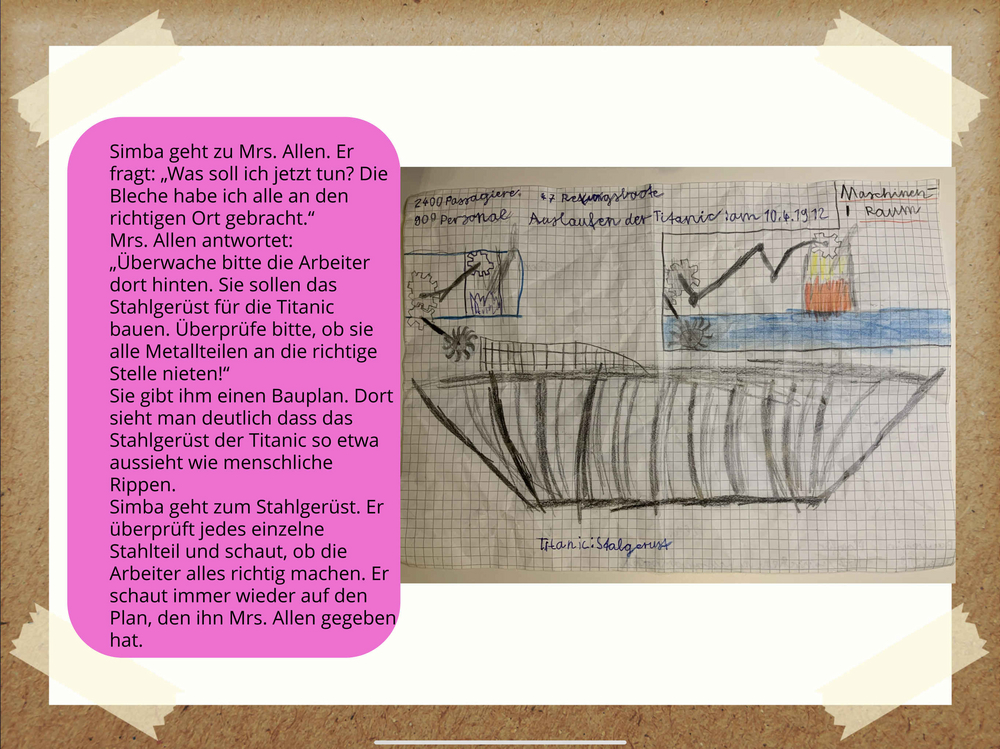 Simba geht zu Mrs. Allen. Er
fragt: „Was soll ich jetzt tun? Die
Bleche habe ich alle an den
richtigen Ort gebracht.“
Mrs. Allen antwortet:
„Überwache bitte die Arbeiter
dort hinten. Sie sollen das
Stahlgerüst für die Titanic
bauen. Überprüfe bitte, ob sie
alle Metallteilen an die richtige
Stelle nieten!“
Sie gibt ihm einen Bauplan. Dort
sieht man deutlich dass das
Stahlgerüst der Titanic so etwa
aussieht wie menschliche
Rippen.
Simba geht zum Stahlgerüst. Er
überprüft jedes einzelne
Stahlteil und schaut, ob die
Arbeiter alles richtig machen. Er
schaut immer wieder auf den
Plan, den ihn Mrs. Allen gegeben
hat.
2400 Passagiere.
900 Personal
Auslaufen der Titanic: am 10.4.1912
Maschinen=
Raum
Titanic: Stalgerust